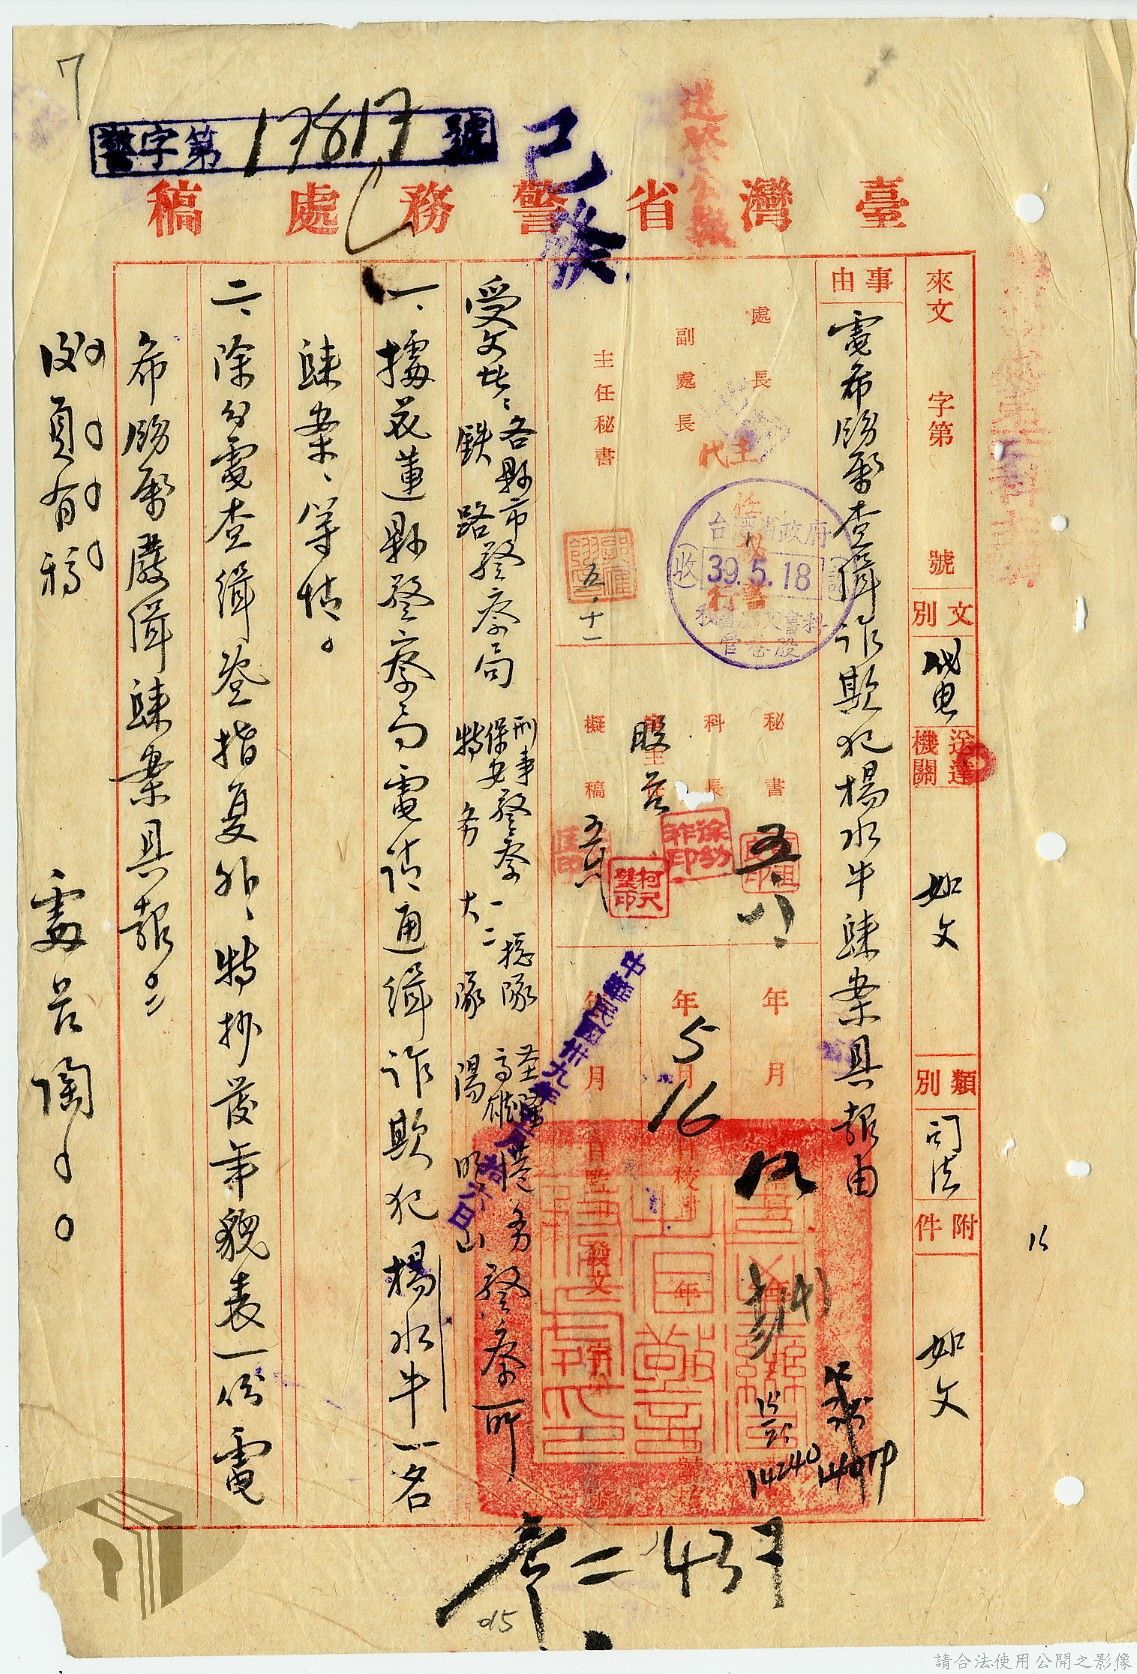 7
警字第17817號
已發
送登公報
臺灣省警務處稿
來文 字第 號
文別 代電
送達機關 如文
類別 司法
附件 如文
事由 電希飭屬查緝詐欺犯楊水牛歸案具報由
處長
副處長
主任秘書
五.十一
台灣省政府
收 39.5.18
秘書
科長
股長
擬稿
年 月
5 16
中華民國卅九年五月拾六日
受文者、各縣市警察局
鐵路
刑事
保安警察一二總隊
特務大隊
基隆
高雄港務警察所
陽明山
一、據花蓮縣警察局電請通緝詐欺犯楊水牛一名
歸案、等情。
二、除分電查緝並指复外、特抄發年貌表一份電
希飭屬嚴緝歸案具報。
後頁有稿
處長陶
14240
437
015
15
請合法使用公開之影像